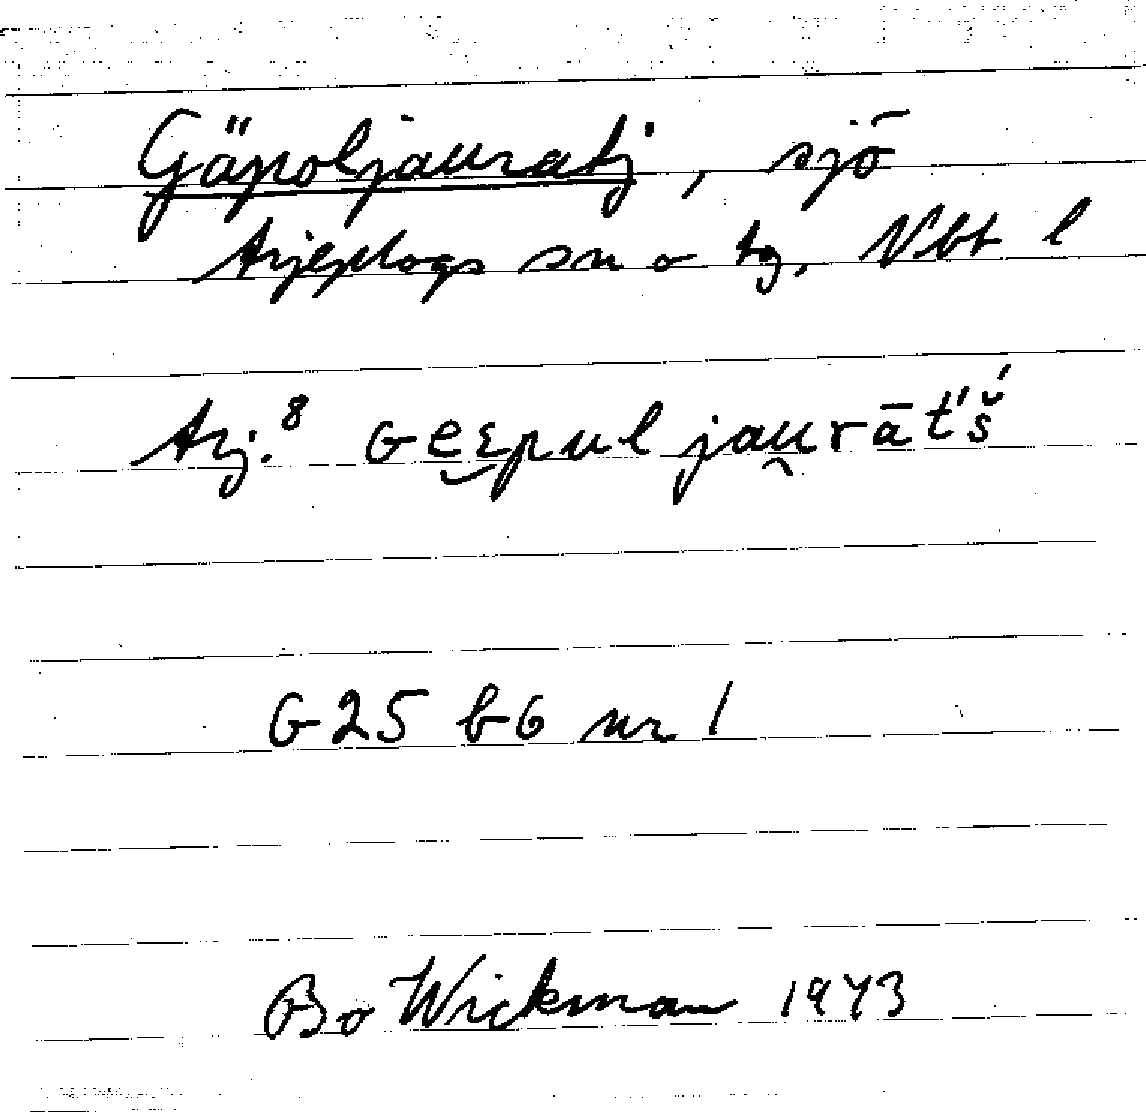 Gäpoljauratj, sjö
Arjeplogs sn o tg, Vbt l
Arj.⁸ ɢeε̮pul jau̯rāt́š́
G25 b6 nr 1
Bo Wickman 1973